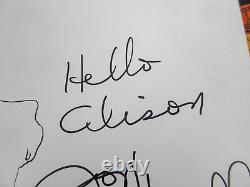 Hello
Alison